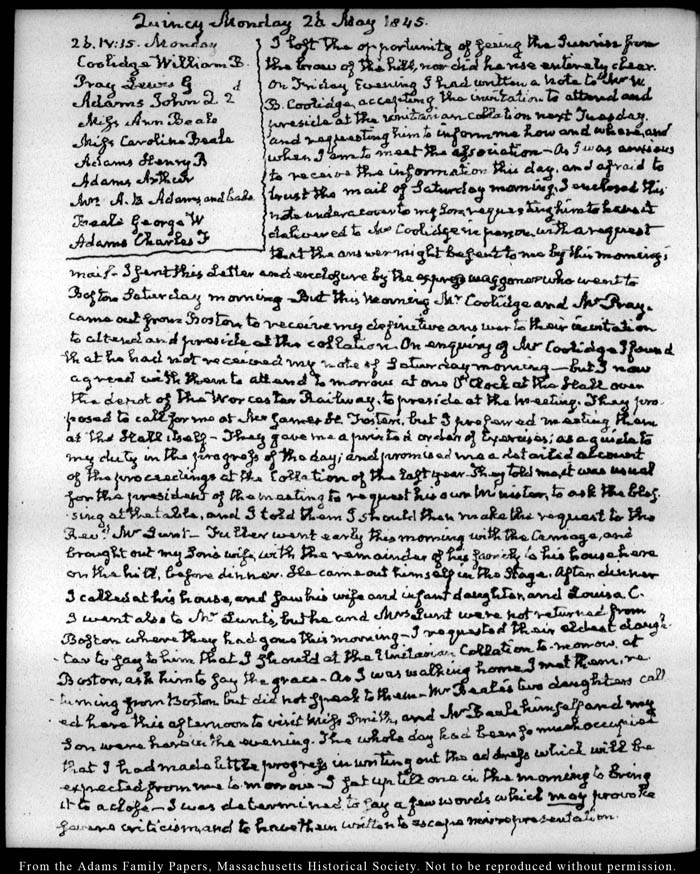 Quincy Monday 26 May 1845.
26. IV:15. Monday
Coolidge William B.
Pray Lewis G
Adams John Q 2d
Miss Ann Beale
Miss Caroline Beale
Adams Henry B
Adams Arthur
Mrs A. B Adams and babe
Beale George W
Adams Charles F
I lost the opportunity of seeing the Sunrise from
the brow of the hill, nor did he rise entirely clear.
On Friday Evening I had written a note to Mr W.
B. Coolidge, accepting the invitation to attend and
preside at the Unitarian collation next Tuesday.
and requesting him to inform me how and where, and
when I am to meet the association – As I was anxious
to receive the information this day, and afraid to
trust the mail of Saturday morning, I enclosed this
note under a cover to my Son, requesting him to have it
delivered to Mr Coolidge in person, with a request
that the answer might be sent to me by this morning's
mail – I sent this Letter and enclosure by the express waggoner who went to
Boston Saturday morning – But this morning Mr Coolidge and Mr Pray.
came out from Boston, to receive my definitive answer to their invitation
to attend and preside at the collation. On enquiry of Mr Coolidge I found
that he had not received my note of Saturday morning – but I now
agreed with them to attend to morrow at one O'Clock at the Hall over
the depot of the Worcester Railway, to preside at the meeting. They pro-
posed to call for me at Mrs James H. Foster's, but I preferred meeting them
at the Hall itself – They gave me a printed order of Exercises; as a guide to
my duty in the progress of the day; and promised me a detailed account
of the proceedings at the Collation of the last year. They told me it was usual
for the president of the meeting to request his own Minister, to ask the bles-
sing at the table, and I told them I should then make the request to the
Revd Mr Lunt – went early this morning with the Carriage, and
brought out my Son's wife, with the remainder of his family to his house here
on the hill, before dinner. He came out himself in the Stage. After dinner
I called at his house, and saw his wife and infant daughter, and Louisa C.
I went also to Mr Lunt's, but he and Mrs Lunt were not returned from
Boston where they had gone this morning – I requested their eldest daugh-
ter to say to him that I should at the Unitarian Collation to-morrow, at
Boston, ask him to say the grace – As I was walking home, I met them, re-
turning from Boston but did not speak to them – Mr Beale's two daughters call
ed here this afternoon to visit Miss Smith, and Mr Beale himself and my
Son were here in the evening. The whole day had been so much occupied
that I had made little progress in writing out the address which will be
expected from me to morrow – I sat up till one in the morning to bring
it to a close – I was determined to say a few words which may provoke
severe criticism, and to have them written to escape misrepresentation.
From the Adams Family Papers, Massachusetts Historical Society. Not to be reproduced without permission.